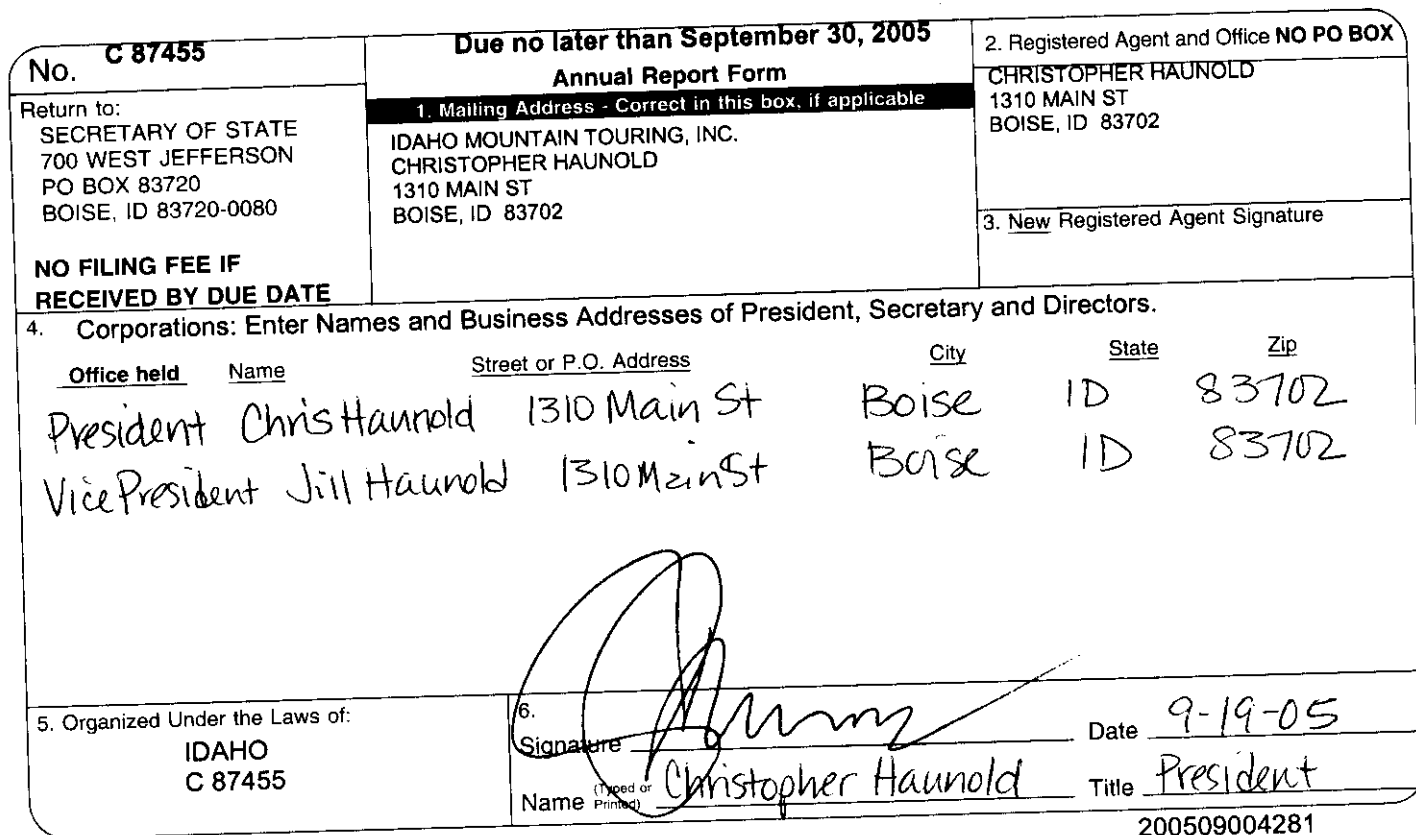 No. C 87455
Return to:
SECRETARY OF STATE
700 WEST JEFFERSON
PO BOX 83720
BOISE, ID 83720-0080
NO FILING FEE IF
RECEIVED BY DUE DATE
Due no later than September 30, 2005
Annual Report Form
1. Mailing Address - Correct in this box, if applicable
IDAHO MOUNTAIN TOURING, INC.
CHRISTOPHER HAUNOLD
1310 MAIN ST
BOISE, ID 83702
2. Registered Agent and Office NO PO BOX
CHRISTOPHER HAUNOLD
1310 MAIN ST
BOISE, ID 83702
3. New Registered Agent Signature
4. Corporations: Enter Names and Business Addresses of President, Secretary and Directors.
Office held Name Street or P.O. Address City State Zip
President Chris Haunold 1310 Main St Boise ID 83702
Vice President Jill Haunold 1310 Main St Boise ID 83702
5. Organized Under the Laws of:
IDAHO
C 87455
6.
Signature Date 9-19-05
Name (Typed or Printed) Christopher Haunold Title President
200509004281